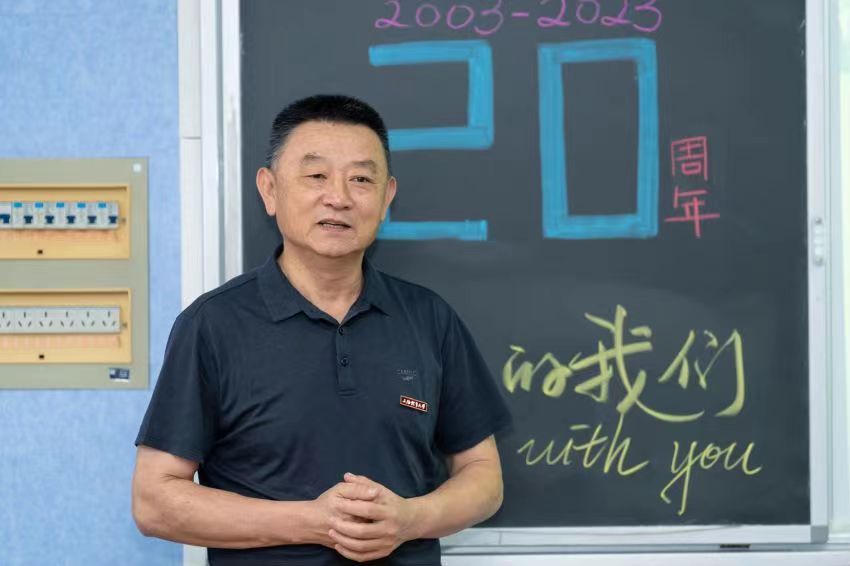 2003-2023
20
周年
的我们
with you